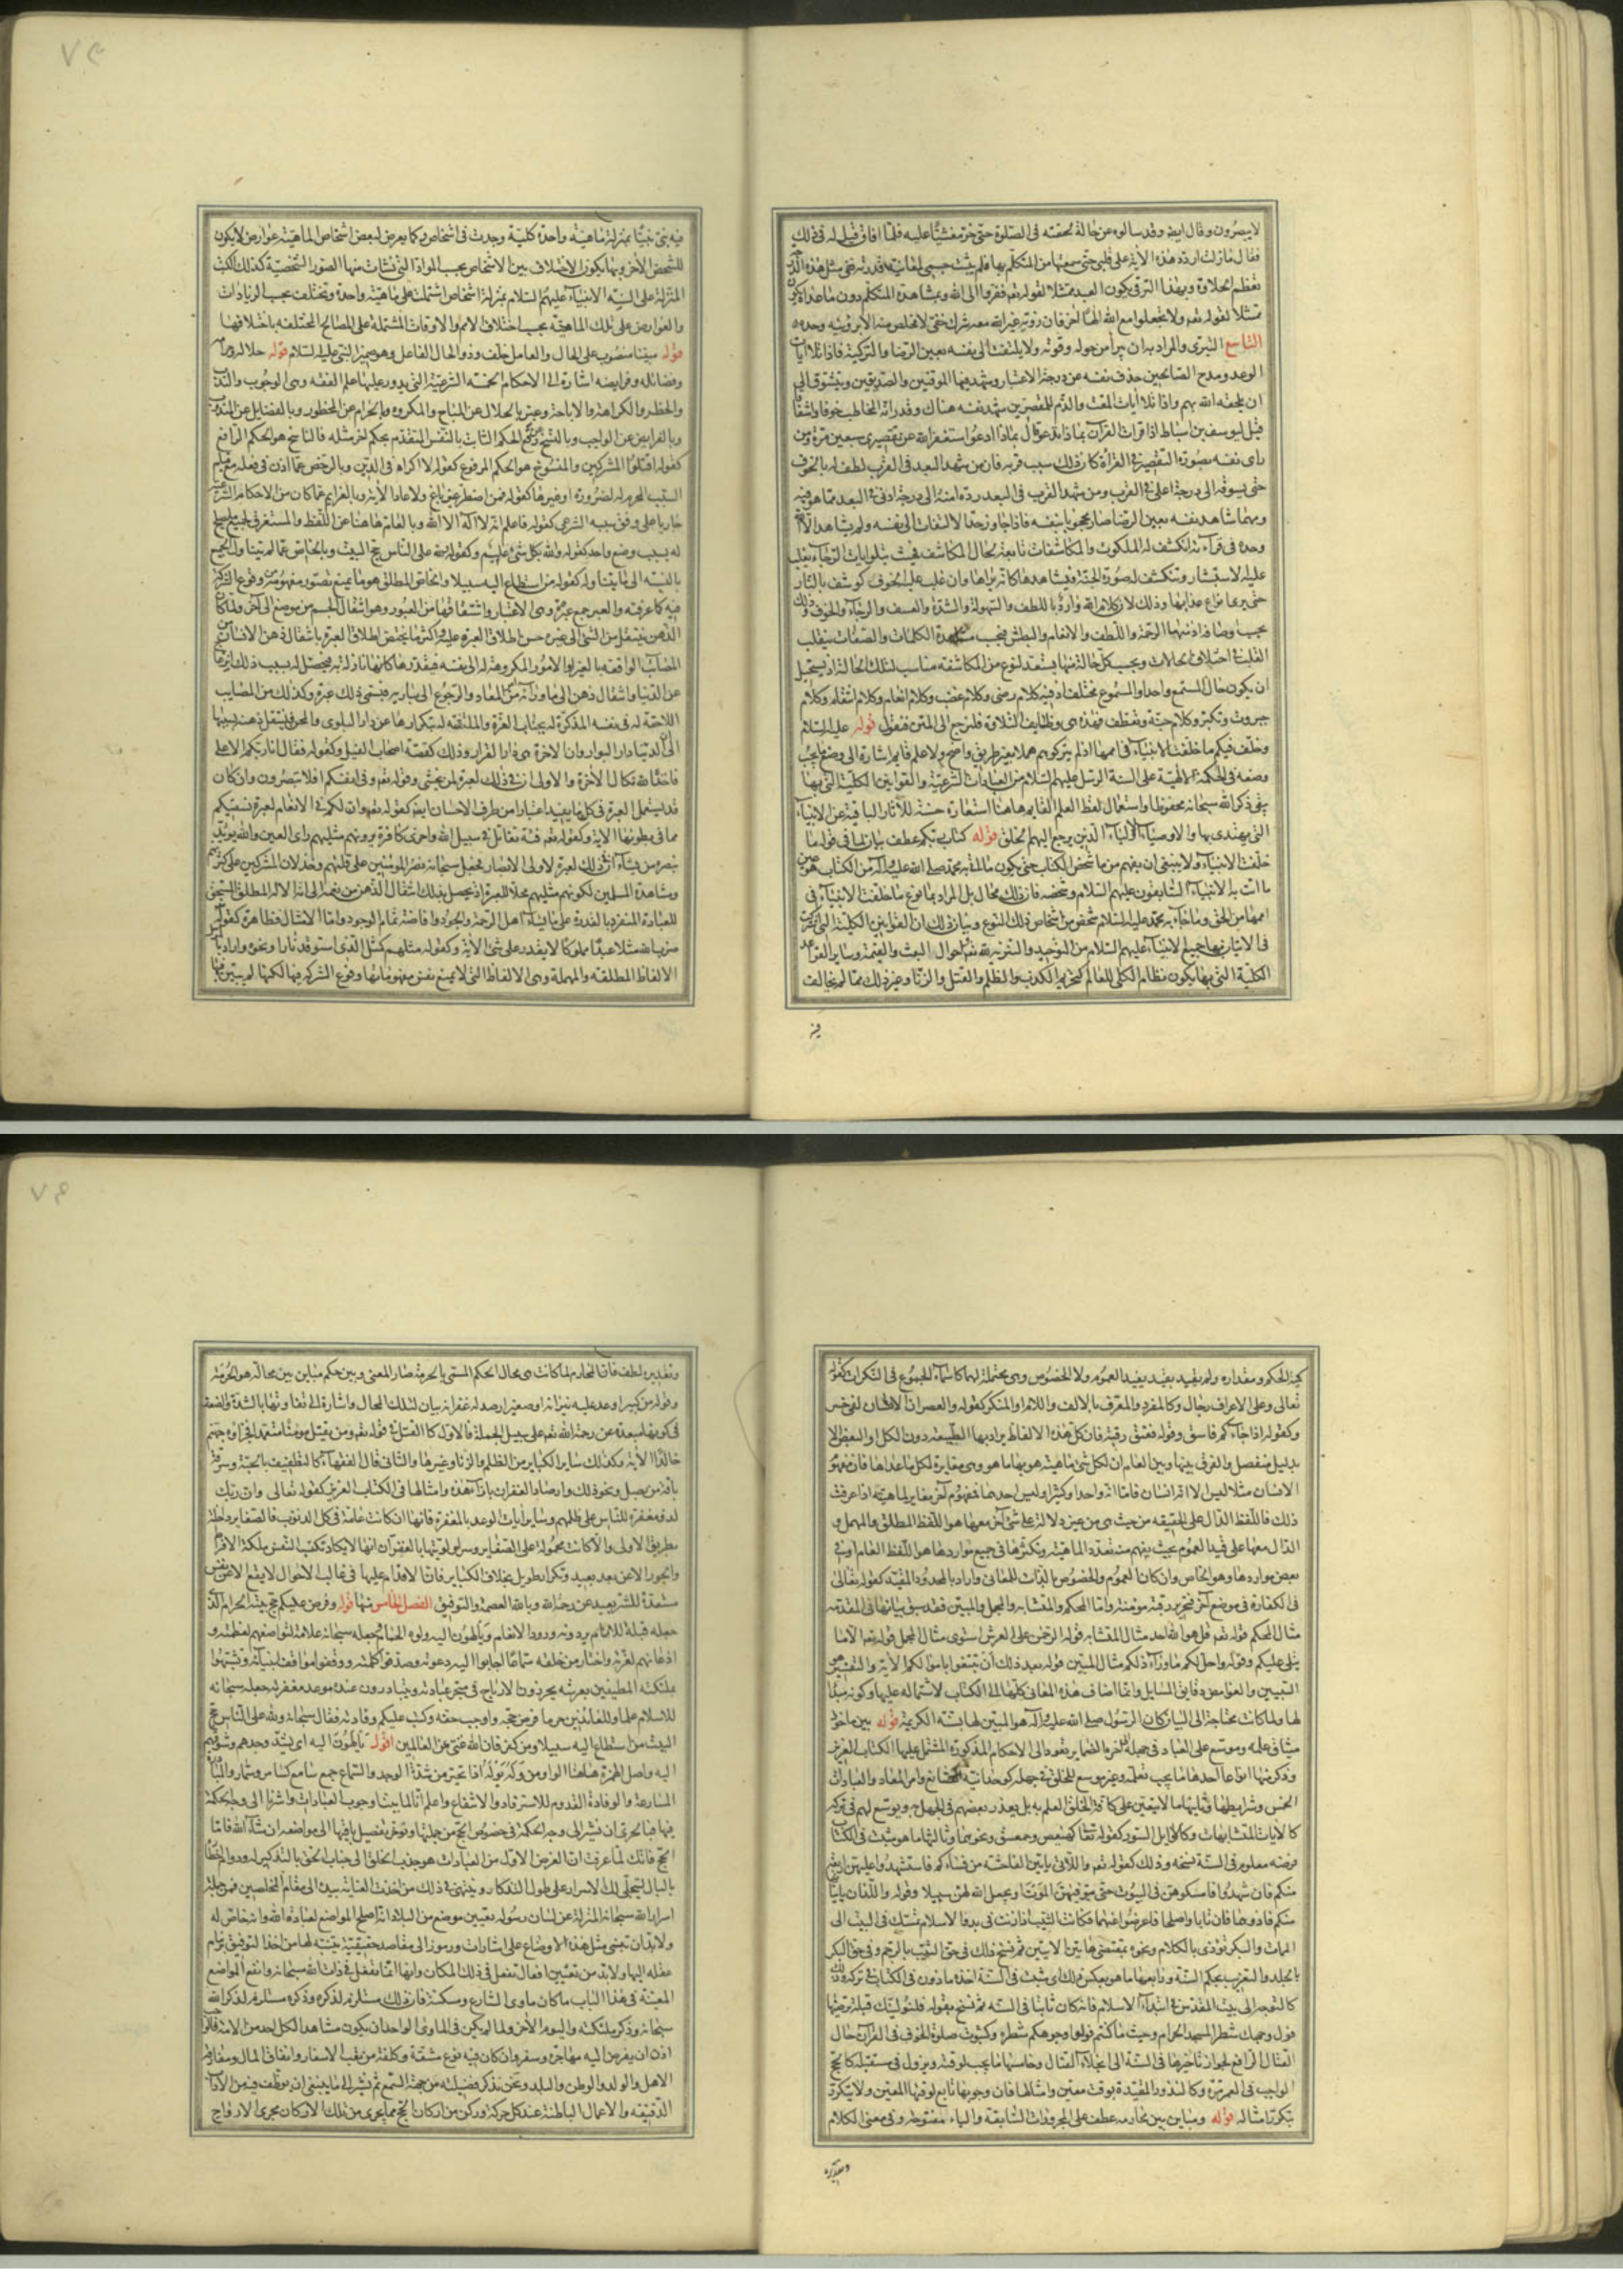 لا يبصرون وقال ايضا وقد سالوه عن حالة لحقته فى الصلوة حتى خر مغشيا عليه فلما افاق قيل له فى ذلك
فقال ما زلت اردد هذه الآية على قلبى حتى سمعتها من المتكلم بها فلم يثبت جسمى لمعاينة قدرته ففى مثل هذه الدرجة
تعظم الحلاوة وبهذا الترقى يكون العبد ممتثلا لقوله تعم ففروا الى الله وبمشاهدة المتكلم دون ما عداه يكون
ممتثلا لقوله تعم ولا تجعلوا مع الله الها آخر فان رؤية غير الله معه شرك خفى لا مخلص منه الا برؤيته وحده
التاسع التبرى والمراد به ان يبرأ من حوله وقوته ولا يلتفت الى نفسه بعين الرضا والتزكية فاذا تلا آيات
الوعد ومدح الصالحين حذف نفسه عن درجة الاعتبار وشهد فيها الموقنين والصديقين ويتشوق الى
ان يلحقه الله بهم واذا تلا آيات المقت والذم للمقصرين شهد نفسه هناك وقدر انه المخاطب خوفا واشفاقا
قيل ليوسف بن اسباط اذا قرات القرآن بماذا تدعو قال بماذا ادعو استغفر الله عن تقصيرى سبعين مرة ومن
راى نفسه بصورة التقصير فى القراة كان ذلك سبب قربه فان من شهد البعد فى القرب لطف له بالخوف
حتى يسوقه الى درجة اعلى فى القرب ومن شهد القرب فى البعد رده امنه الى درجة ادنى فى البعد مما هو فيه
ومهما شاهد نفسه بعين الرضا صار محجوبا بنفسه فاذا جاوز حد الالتفات الى نفسه ولم يشاهد الا الله
وحده فى قراءته انكشف له الملكوت والمكاشفات تابعة لحال المكاشف فحيث يتلو آيات الرجاء يغلب
عليه الاستبشار وتنكشف له صورة الجنة فيشاهدها كانه يراها وان غلب عليه الخوف كوشف بالنار
حتى يرى انواع عذابها وذلك لان كلام الله وارد باللطف والسهولة والشدة والعسف والرجاء والخوف وذلك
بحسب اوصافه اذ منها الرحمة واللطف والانعام والبطش فبحسب مشاهدة الكلمات والصفات يتقلب
القلب فى اختلاف الحالات وبحسب كل حالة منها يستعد لنوع من المكاشفة مناسب لتلك الحالة اذ يستحيل
ان يكون حال المستمع واحدا والمسموع مختلفا اذ فيه كلام رضى وكلام غضب وكلام انعام وكلام انتقام وكلام
جبروت وتكبر وكلام حنة وتعطف فهذه هى وظايف التلاوة فلنرجع الى المتن فنقول قوله عليه السلام
وخلف فيكم ما خلفت الانبياء فى اممها اذ لم يتركوهم هملا بغير طريق واضح ولا علم قايم اشارة الى وضع ما يجب
وضعه فى الحكمة الالهية على السنة الرسل عليهم السلام من العبادات الشرعية والقوانين الكلية التى بها
يبقى ذكر الله سبحانه محفوظا واستعمال لفظ العلم القايم هاهنا استعارة حسنة للآثار الباقية عن الانبياء
التى يهتدى بها والاوصياء الاولياء الذين يرجع اليهم الخلق قوله كتاب ربكم عطف بيان لما فى قوله ما
خلفت الانبياء ولا ينبغى ان يفهم من ما شخص الكتاب حتى يكون ما اتى به محمد صلى الله عليه وآله من الكتاب هو عين
ما اتت به الانبياء السابقون عليهم السلام وشخصه فان ذلك محال بل المراد بما نوع ما خلفت الانبياء فى
اممها من الحق وما جاء به محمد عليه السلام شخص من اشخاص ذلك النوع وبيان ذلك ان القوانين الكلية التى اشترك
فى الاتيان بها جميع الانبياء عليهم السلام من التوحيد والتنزيه لله تعم واحوال البعث والقيمة وساير القواعد
الكلية التى بها يكون نظام الكلى للعالم كتحريم الكذب والظلم والقتل والزنا وغير ذلك مما لم يخالف
فيه
فيه نبى نبيا بمنزلة ماهية واحدة كلية وجدت فى اشخاص وكما يعرض لبعض اشخاص الماهية عوارض لا يكون
للشخص الآخر وبها يكون الاختلاف بين الاشخاص بحسب المواد التى نشات منها الصور الشخصية كذلك الكتب
المنزلة على السنة الانبياء عليهم السلام بمنزلة اشخاص اشتملت على ماهية واحدة وتختلف بحسب الزيادات
والعوارض على تلك الماهية بحسب اختلاف الامم والاوقات المشتملة على المصالح المختلفة باختلافها
قوله مبينا منصوب على الحال والعامل خلف وذو الحال الفاعل وهو ضمير النبى عليه السلام قوله حلاله وحرامه
وفضائله وفرايضه اشارة الى الاحكام الخمسة الشرعية التى يدور عليها علم الفقه وهى الوجوب والندب
والحظر والكراهة والاباحة وعبر بالحلال عن المباح والمكروه وبالحرام عن المحظور وبالفضايل عن المندوب
وبالفرايض عن الواجب وبالنسخ رفع الحكم الثابت بالنص المتقدم بحكم آخر مثله فالناسخ هو الحكم الرافع
كقوله اقتلوا المشركين والمنسوخ هو الحكم المرفوع كقوله لا اكراه فى الدين وبالرخص عما اذن فى فعله مع قيام
السبب المحرم له لضرورة او غيرها كقوله فمن اضطر غير باغ ولا عاد الآية وبالعزايم عما كان من الاحكام الشرعية
جاريا على وفق سببه الشرعى كقوله فاعلم انه لا اله الا الله وبالعام هاهنا عن اللفظ والمستغرق لجميع ما يصلح
له بسبب وضع واحد كقوله والله بكل شئ عليم وكقوله ولله على الناس حج البيت وبالخاص عما لم يتناول الجميع
بالنسبة الى ما يتناوله كقوله من استطاع اليه سبيلا والخاص المطلق هو ما يمنع تصور مفهومه من وقوع الشركة
فيه كما عرفته والعبر جمع عبرة وهى الاعتبار واشتقاقها من العبور وهو انتقال الجسم من موضع الى آخر ولما كان
الذهن ينتقل من الشئ الى غيره حسن اطلاق العبرة عليه واكثر ما يختص اطلاق العبرة بانتقال ذهن الانسان من
المصائب الواقعة بالغير او الامور المكروهة له الى نفسه فيقدرها كانها نازلة به فيحصل له بسبب ذلك انزعاج
عن الدنيا وانتقال ذهن الى ما وراءها من المعاد والرجوع الى بارئه فيسمى ذلك عبرة وكذلك من المصايب
اللاحقة له فى نفسه المذكرة له بجناب العزة والملتفتة له بتكرارها عن دار البلوى والمحن فينتقل ذهنه بسببها
الى ان الدنيا دار البوار وان الآخرة هى دار القرار وذلك كقصة اصحاب الفيل وكقوله فقال انا ربكم الاعلى
فاخذه الله نكال الآخرة والاولى ان فى ذلك لعبرة لمن يخشى وقوله تعم وفى انفسكم افلا تبصرون وان كان
قد يستعمل العبرة فى كل ما يفيد اعتبارا من طرف الاحسان ايضا كقوله تعم وان لكم فى الانعام لعبرة نسقيكم
مما فى بطونها الآية وكقوله تعم فئة تقاتل فى سبيل الله واخرى كافرة يرونهم مثليهم راى العين والله يؤيد
بنصره من يشاء ان فى ذلك لعبرة لاولى الابصار فجعل سبحانه نصر المؤمنين على قلتهم وخذلان المشركين على كثرتهم
ومشاهدة المسلمين لكونهم مثليهم محلا للعبرة اذ يحصل بذلك انتقال الذهن من نعمه الى انه الاله المطلق المستحق
للعبادة المنفرد بالقدرة على ما يشاء اهل الرحمة والجود وافاضة تمام الوجود واما الامثال فظاهرة كقوله
ضرب الله مثلا عبدا مملوكا لا يقدر على شئ الآية وكقوله مثلهم كمثل الذى استوقد نارا ونحو واراد بالمرسل
الالفاظ المطلقة والمهملة وهى الالفاظ التى لا يمنع نفس مفهوماتها وقوع الشركة فيها لكنها لم يبين فيها
كمية الحكم ومقداره ولم تقيد بقيد يفيد العموم ولا الخصوص وهى محتملة لهما كاسماء الجموع فى النكرات كقوله
تعالى وعلى الاعراف رجال وكالمفرد والمعرف بالالف واللام او المنكر كقوله والعصر ان الانسان لفى خسر
وكقوله اذا جاءكم فاسق وقوله فعتق رقبة فان كل هذه الالفاظ يراد بها الطبيعة دون الكل او البعض الا
بدليل منفصل والفرق بينها وبين العام ان لكل شئ ماهية هو بها ما هو وهى مغايرة لكل ما عداها فان مفهوم
الانسان مثلا ليس الا انه انسان فاما انه واحد او كثير او ليس احدهما فمفهوم آخر مغاير لماهيته اذا عرفت
ذلك فاللفظ الدال على الحقيقة من حيث هى من غير دلالة على شئ آخر معها هو اللفظ المطلق والمهمل و
الدال معها على قيد العموم بحيث يفهم منه تعدد الماهية وتكثرها فى جميع مواردها هو اللفظ العام او فى
بعض مواردها وهو الخاص وان كان العموم والخصوص بالذات للمعانى واراد بالمحدود المقيد كقوله تعالى
فى الكفارة فى موضع آخر فتحرير رقبة مؤمنة واما المحكم والمتشابه والمجمل والمبين فقد سبق بيانها فى المقدمه
مثال المحكم قوله تعم قل هو الله احد مثال المتشابه قوله الرحمن على العرش استوى مثال المجمل قوله تعم الا ما
يتلى عليكم وقوله واحل لكم ما وراء ذلكم مثال المبين قوله بعد ذلك ان تبتغوا باموالكم الآية والتفسير هو
التبيين والغوامض دقايق المسايل وانما اضاف هذه المعانى كلها الى الكتاب لاشتماله عليها وكونه مبدأ
لها ولما كانت محتاجة الى البيان كان الرسول صلى الله عليه وآله هو المبين لها بسنته الكريمة قوله بين ماخوذ
ميثاق علمه وموسع على العباد فى جهله الى آخره الضماير تعود الى الاحكام المذكورة المشتمل عليها الكتاب العزيز
وذكر منها انواعا احدها ما يجب تعلمه وغير موسع للخلق فى جهله كوحدانية الصانع وامر المعاد والعبادات
الخمس وشرايطها وثانيها ما لا يتعين على كافة الخلق العلم به بل يعذر بعضهم فى الجهل به ويوسع لهم فى تركه
كالآيات المتشابهات وكاوايل السور كقوله تعا كهيعص وحمعسق ونحوهما وثالثها ما هو مثبت فى الكتاب
فرضه معلوم فى السنة نسخه وذلك كقوله تعم واللاتى ياتين الفاحشة من نساءكم فاستشهدوا عليهن اربعة
منكم فان شهدوا فامسكوهن فى البيوت حتى يتوفيهن الموت او يجعل الله لهن سبيلا وقوله واللذان ياتيانها
منكم فآذوهما فان تابا واصلحا فاعرضوا عنهما فكانت الثيب اذا زنت فى بدؤ الاسلام تمسك فى البيت الى
الممات والبكر تؤذى بالكلام ونحوه بمقتضى هاتين الآيتين ثم نسخ ذلك فى حق الثيب بالرجم وفى حق البكر
بالجلد والتغريب بحكم السنة ورابعها ما هو بعكس ذلك اى مثبت فى السنة اخذه ماذون فى الكتاب فى تركه وذلك
كالتوجه الى بيت المقدس فى ابتداء الاسلام فانه كان ثابتا فى السنة ثم نسخ بقوله فلنولينك قبلة ترضيها
فول وجهك شطر المسجد الحرام وحيث ما كنتم فولوا وجوهكم شطره وكثبوت صلوة الخوف فى القرآن حال
القتال الرافع لجواز تاخيرها فى السنة الى انجلاء القتال وخامسها ما يجب لوقته ويزول فى مستقبله كالحج
الواجب فى العمر مرة وكالنذور المقيدة بوقت معين وامثالها فان وجوبها تابع لوقتها المعين ولا يتكرر
بتكرر امثاله قوله ومباين بين محارمه عطف على المجرورات السابقة والياء مفتوحة وفى معنى الكلام
وتقديره
وتقديره لطف فان المحارم لما كانت هى محال الحكم المسمى بالحرمة صار المعنى وبين حكم مباين بين محاله هو الحرمة
وقوله من كبير اوعد عليه نيرانه او صغير ارصد له غفرانه بيان لتلك المحال واشارة الى تفاوتها بالشدة والضعف
فى كونها مبعدة عن رحمة الله تعم على سبيل الجملة فالاول كالقتل فى قوله تعم ومن يقتل مؤمنا متعمدا فجزاؤه جهنم
خالدا الآية وكذلك ساير الكباير من الظلم والزنا وغيرها والثانى قال الفقهاء كالتطفيف بالحبة وسرقة
باقة من بصل ونحو ذلك وارصاد الغفران بازاء هذه وامثالها فى الكتاب العزيز كقوله تعالى وان ربك
لذو مغفرة للناس على ظلمهم وساير آيات الوعد بالمغفرة فانها ان كانت عامة فى كل الذنوب فالصغاير داخلة
بطريق الاولى والا كانت محمولة على الصغاير وسر اولويتها بالغفران انها لا يكاد تكسب النفس ملكة الاقدام
والجور الا عن بعد بعيد وتكرار طويل بخلاف الكباير فان الاقدام عليها فى غالب الاحوال لا يقع الا عن نفس
مستعدة للشر بعيد عن رحمة الله وبالله العصمة والتوفيق الفصل الخامس منها قوله وفرض عليكم حج بيته الحرام الذى
جعله قبلة للانام يردونه ورود الانعام ويألهون اليه ولوه الحمام جعله سبحانه علامة لتواضعهم لعظمته و
اذعانهم لعزته واختار من خلقه سماعا اجابوا اليه دعوته وصدقوا كلمته ووقفوا مواقف انبيائه وتشبهوا
بملئكته المطيفين بعرشه يحرزون الارباح فى متجر عبادته ويتبادرون عنده موعد مغفرته جعله سبحانه
للاسلام علما وللعايذين حرما فرض حجه واوجب حقه وكتب عليكم وفادته فقال سبحانه ولله على الناس حج
البيت من استطاع اليه سبيلا ومن كفر فان الله غنى عن العالمين اقول يألهون اليه اى يشتد وجدهم وشوقهم
اليه واصل الهمزة هاهنا الواو من وله توله اذا تحير من شدة الوجد والسماع جمع سامع كسامر وسمار والمتابع
المسارعة والوفادة القدوم للاسترفاد والانتفاع واعلم انا لما بينا وجوب العبادات واشرنا الى وجه الحكمة
فيها فبالحرى ان نشير الى وجه الحكمة فى خصوص الحج من جملتها ونؤخر تفصيل باقيها الى مواضعه ان شاء الله فاما
الحج فانك لما عرفت ان الغرض الاول من العبادات هو جذب الخلق الى جناب الحق بالتذكير له ودوام اخطاره
بالبال لتتجلى لك الاسرار على طول التذكار وينتهى فى ذلك من اخذت العناية بيده الى مقام المخلصين فمن جملة
اسرار الله سبحانه المنزلة عن لسان رسوله تعيين موضع من البلاد انه اصلح المواضع لعبادة الله وانه خاص له
ولا بد ان تبتنى مثل هذه الاوضاع على اشارات ورموز الى مقاصد حقيقية يتنبه لها من اخذ التوفيق بزمام
عقله اليها ولا بد من تعيين افعال تفعل فى ذلك المكان وانها انما تفعل فى ذات الله سبحانه وانفع المواضع
المعينة فى هذا الباب ما كان ماوى الشارع ومسكنه فان ذلك مستلزم لذكره وذكره مستلزم لذكر الله
سبحانه وذكر ملئكته واليوم الآخر ولما لم يكن فى الماوى الواحد ان يكون مشاهدا لكل احد من الامة فالواجب
اذن ان يفرض اليه مهاجرة وسفر وان كان فيه نوع مشقة وكلفة من تعب الاسفار وانفاق المال ومفارقة
الاهل والولد والوطن والبلد ونحن نذكر فضيلته من جهة السمع ثم نشير الى ما ينبغى ان يوظف فيه من الآداب
الدقيقة والاعمال الباطنة عند كل حركة وركن من اركان الحج مما يجرى من تلك الاركان مجرى الارواح